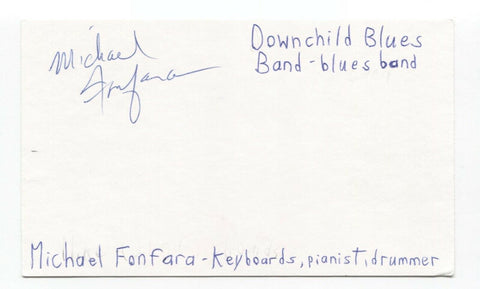 Michael
Fonfara
Downchild Blues
Band - blues band
Michael Fonfara - Keyboards, pianist, drummer